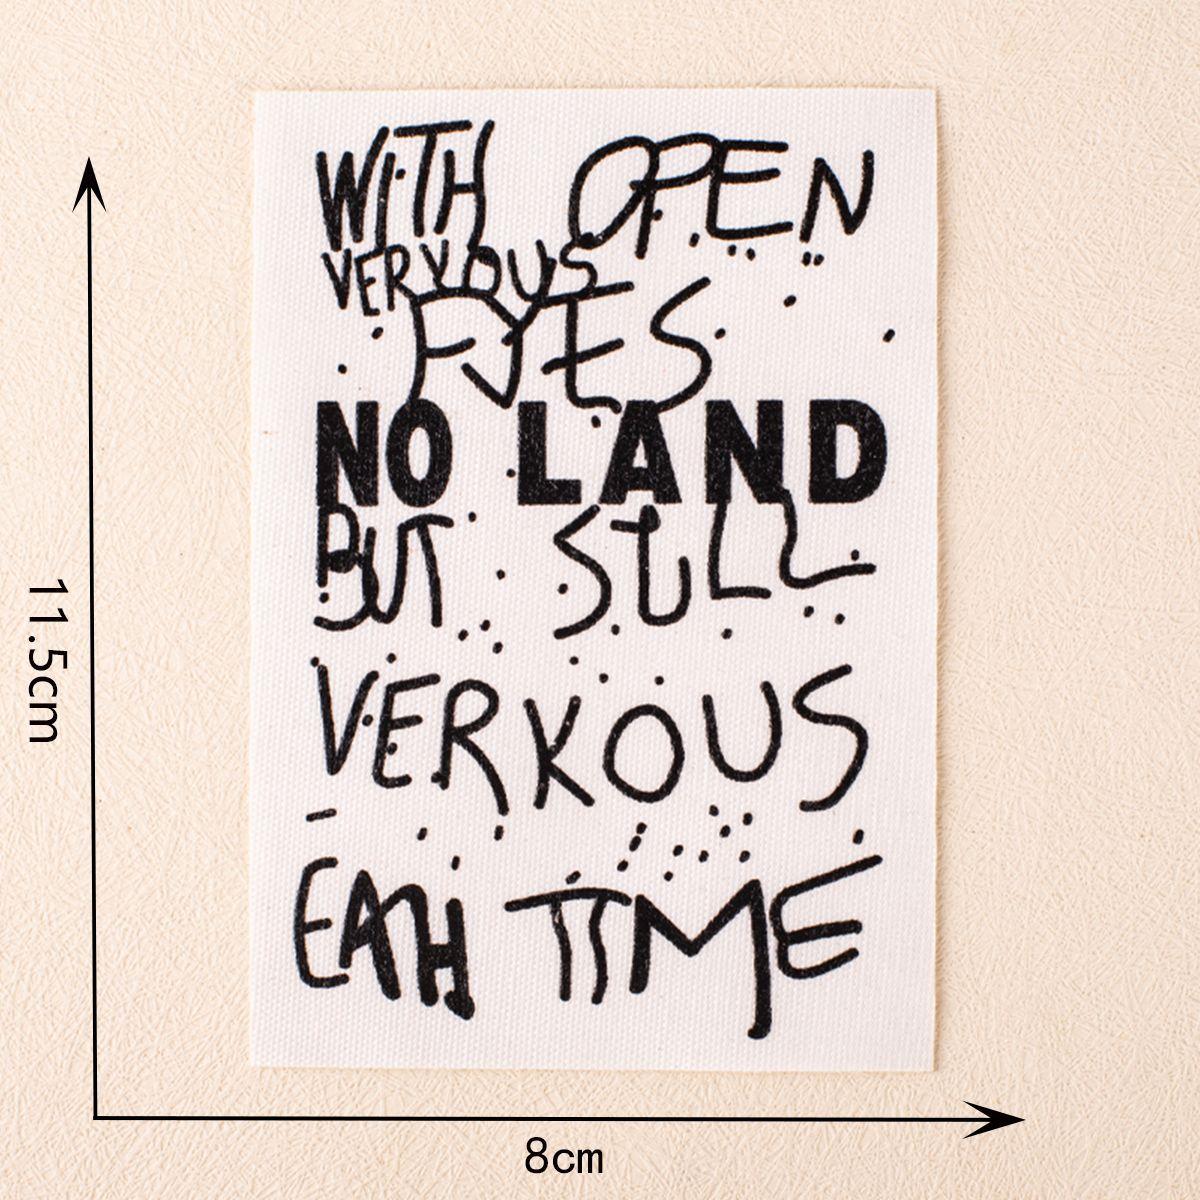 WITH OPEN
VERVOUS
EYES
NO LAND
BUT STILL
VERKOUS
EAH TIME
11.5cm
8cm